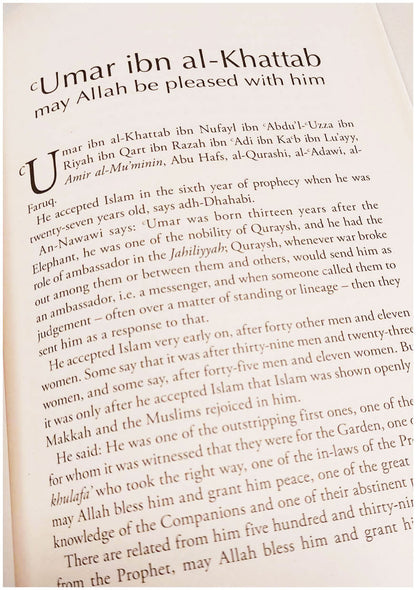 ʿUmar ibn al-Khattab
may Allah be pleased with him
ʿUmar ibn al-Khattab ibn Nufayl ibn ʿAbdu'l-ʿUzza ibn
Riyah ibn Qart ibn Razah ibn ʿAdi ibn Kaʿb ibn Lu'ayy,
Amir al-Mu'minin, Abu Hafs, al-Qurashi, al-ʿAdawi, al-
Faruq.
He accepted Islam in the sixth year of prophecy when he was
twenty-seven years old, says adh-Dhahabi.
An-Nawawi says: ʿUmar was born thirteen years after the
Elephant, he was one of the nobility of Quraysh, and he had the
role of ambassador in the Jahiliyyah; Quraysh, whenever war broke
out among them or between them and others, would send him as
an ambassador, i.e. a messenger, and when someone called them to
judgement – often over a matter of standing or lineage – then they
sent him as a response to that.
He accepted Islam very early on, after forty other men and eleven
women. Some say that it was after thirty-nine men and twenty-three
women, and some say, after forty-five men and eleven women. Bu
it was only after he accepted Islam that Islam was shown openly
Makkah and the Muslims rejoiced in him.
He said: He was one of the outstripping first ones, one of the
for whom it was witnessed that they were for the Garden, one o
khulafa' who took the right way, one of the in-laws of the Pr
may Allah bless him and grant him peace, one of the great
knowledge of the Companions and one of their abstinent
There are related from him five hundred and thirty-ni
from the Prophet, may Allah bless him and grant hi